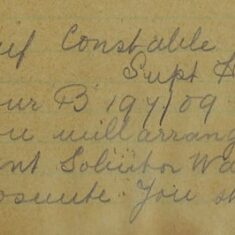 ief Constable
Supt H
our B 197/09
ou will arrang
ent Solicitor Wa
osecute. You sh